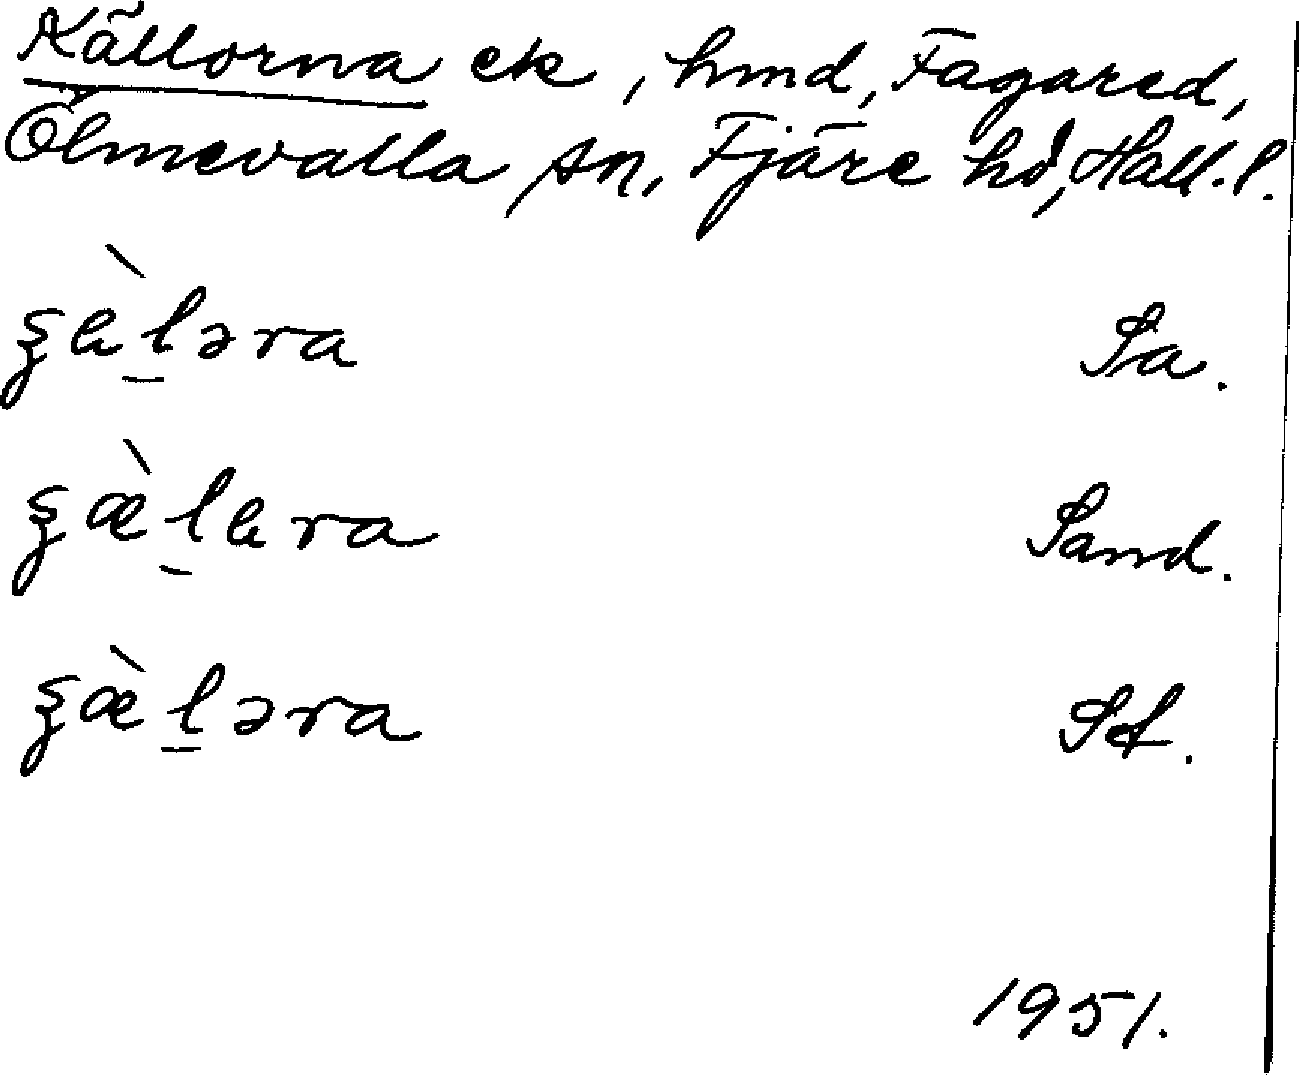 Källorna ek, hmd, Fagared,
Ölmevalla sn, Fjäre hd, Hall. l.
ʂὲl̠əra Sa.
ʂæ̀l̠ɛra Sand.
ʂæ̀l̠əra Sf.
1951.